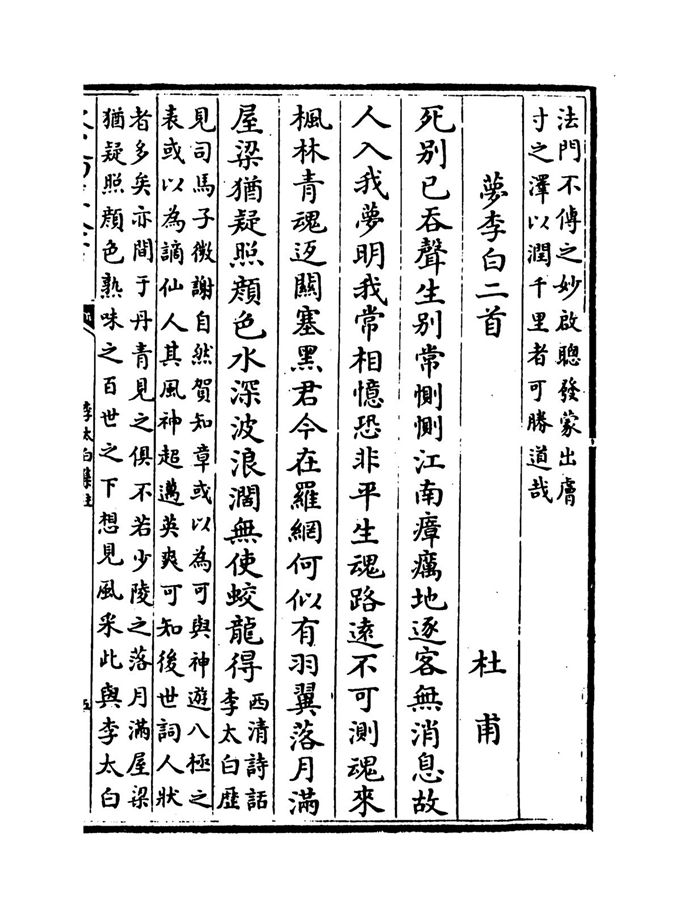 法門不傳之妙啟聰發蒙出膚
寸之澤以潤千里者可勝道哉
夢李白二首
杜甫
死別已吞聲生別常惻惻江南瘴癘地逐客無消息故
人入我夢明我常相憶恐非平生魂路逺不可測魂來
楓林青魂返關塞黑君今在羅網何似有羽翼落月滿
屋梁猶疑照顔色水深波浪濶無使蛟龍得
西清詩話
李太白歴
見司馬子微謝自然賀知章或以為可與神遊八極之
表或以為謫仙人其風神超邁英爽可知後世詞人狀
者多矣亦間于丹青見之俱不若少陵之落月滿屋梁
猶疑照顔色熟味之百世之下想見風采此與李太白
李太白集注
五